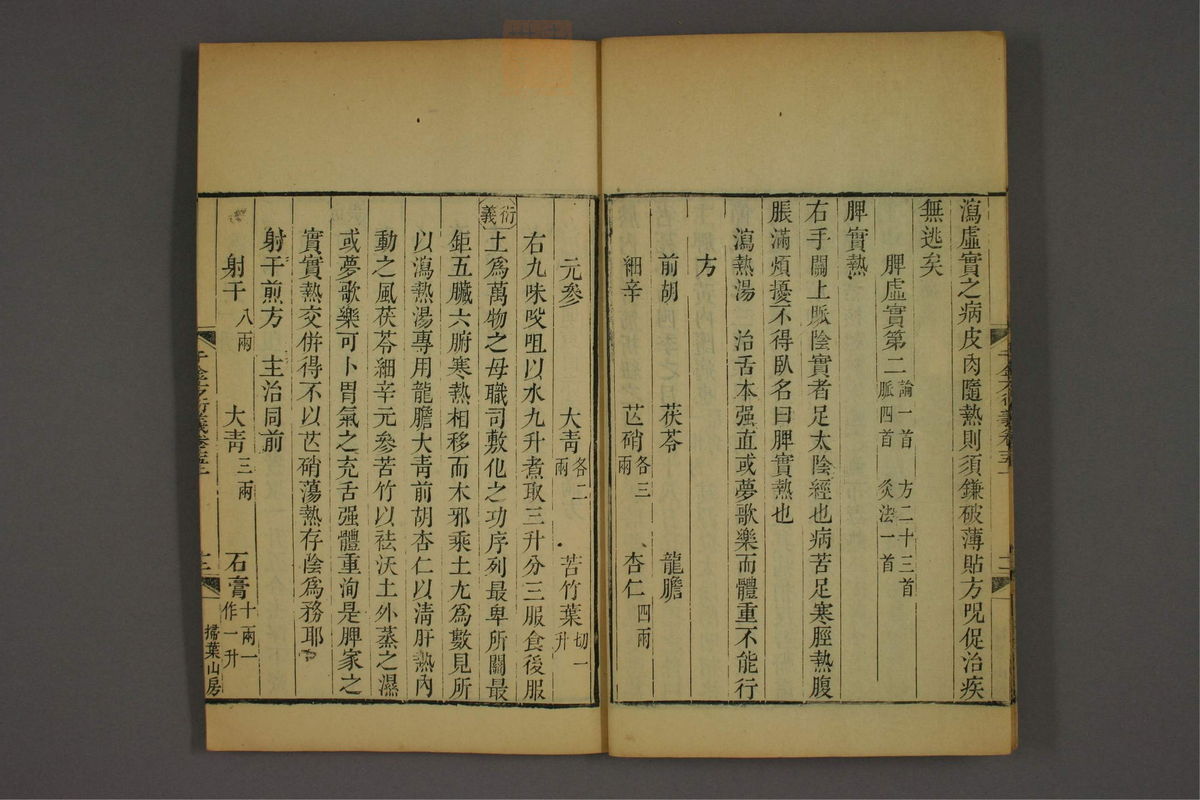 瀉虛實之病皮肉隨熱則須鎌破薄貼方呪促治疾
無逃矣
脾虛實第二 論一首 方二十三首 脈四首 灸法一首
脾實熱
右手關上脈陰實者足太陰經也病苦足寒脛熱腹
脹滿煩擾不得臥名曰脾實熱也
瀉熱湯 治舌本强直或夢歌樂而體重不能行
方
前胡 茯苓 龍膽
細辛 芒硝各三兩 杏仁四兩
元參 大靑各二兩 苦竹葉切一升
右九味㕮咀以水九升煮取三升分三服食後服
衍義 土爲萬物之母職司敷化之功序列最卑所關最
鉅五臟六腑寒熱相移而木邪乘土尤爲數見所
以瀉熱湯專用龍膽大靑前胡杏仁以淸肝熱內
動之風茯苓細辛元參苦竹以祛沃土外蒸之濕
或夢歌樂可卜胃氣之充舌强體重洵是脾家之
實實熱交併得不以芒硝蕩熱存陰爲務耶
射干煎方 主治同前
射干八兩 大靑三兩 石膏十兩一作一升
千金方衍義卷十五上
掃葉山房